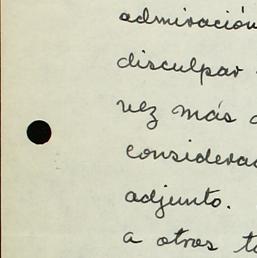 admiración
disculpar
vez más
considerac
adjunto.
a otros t